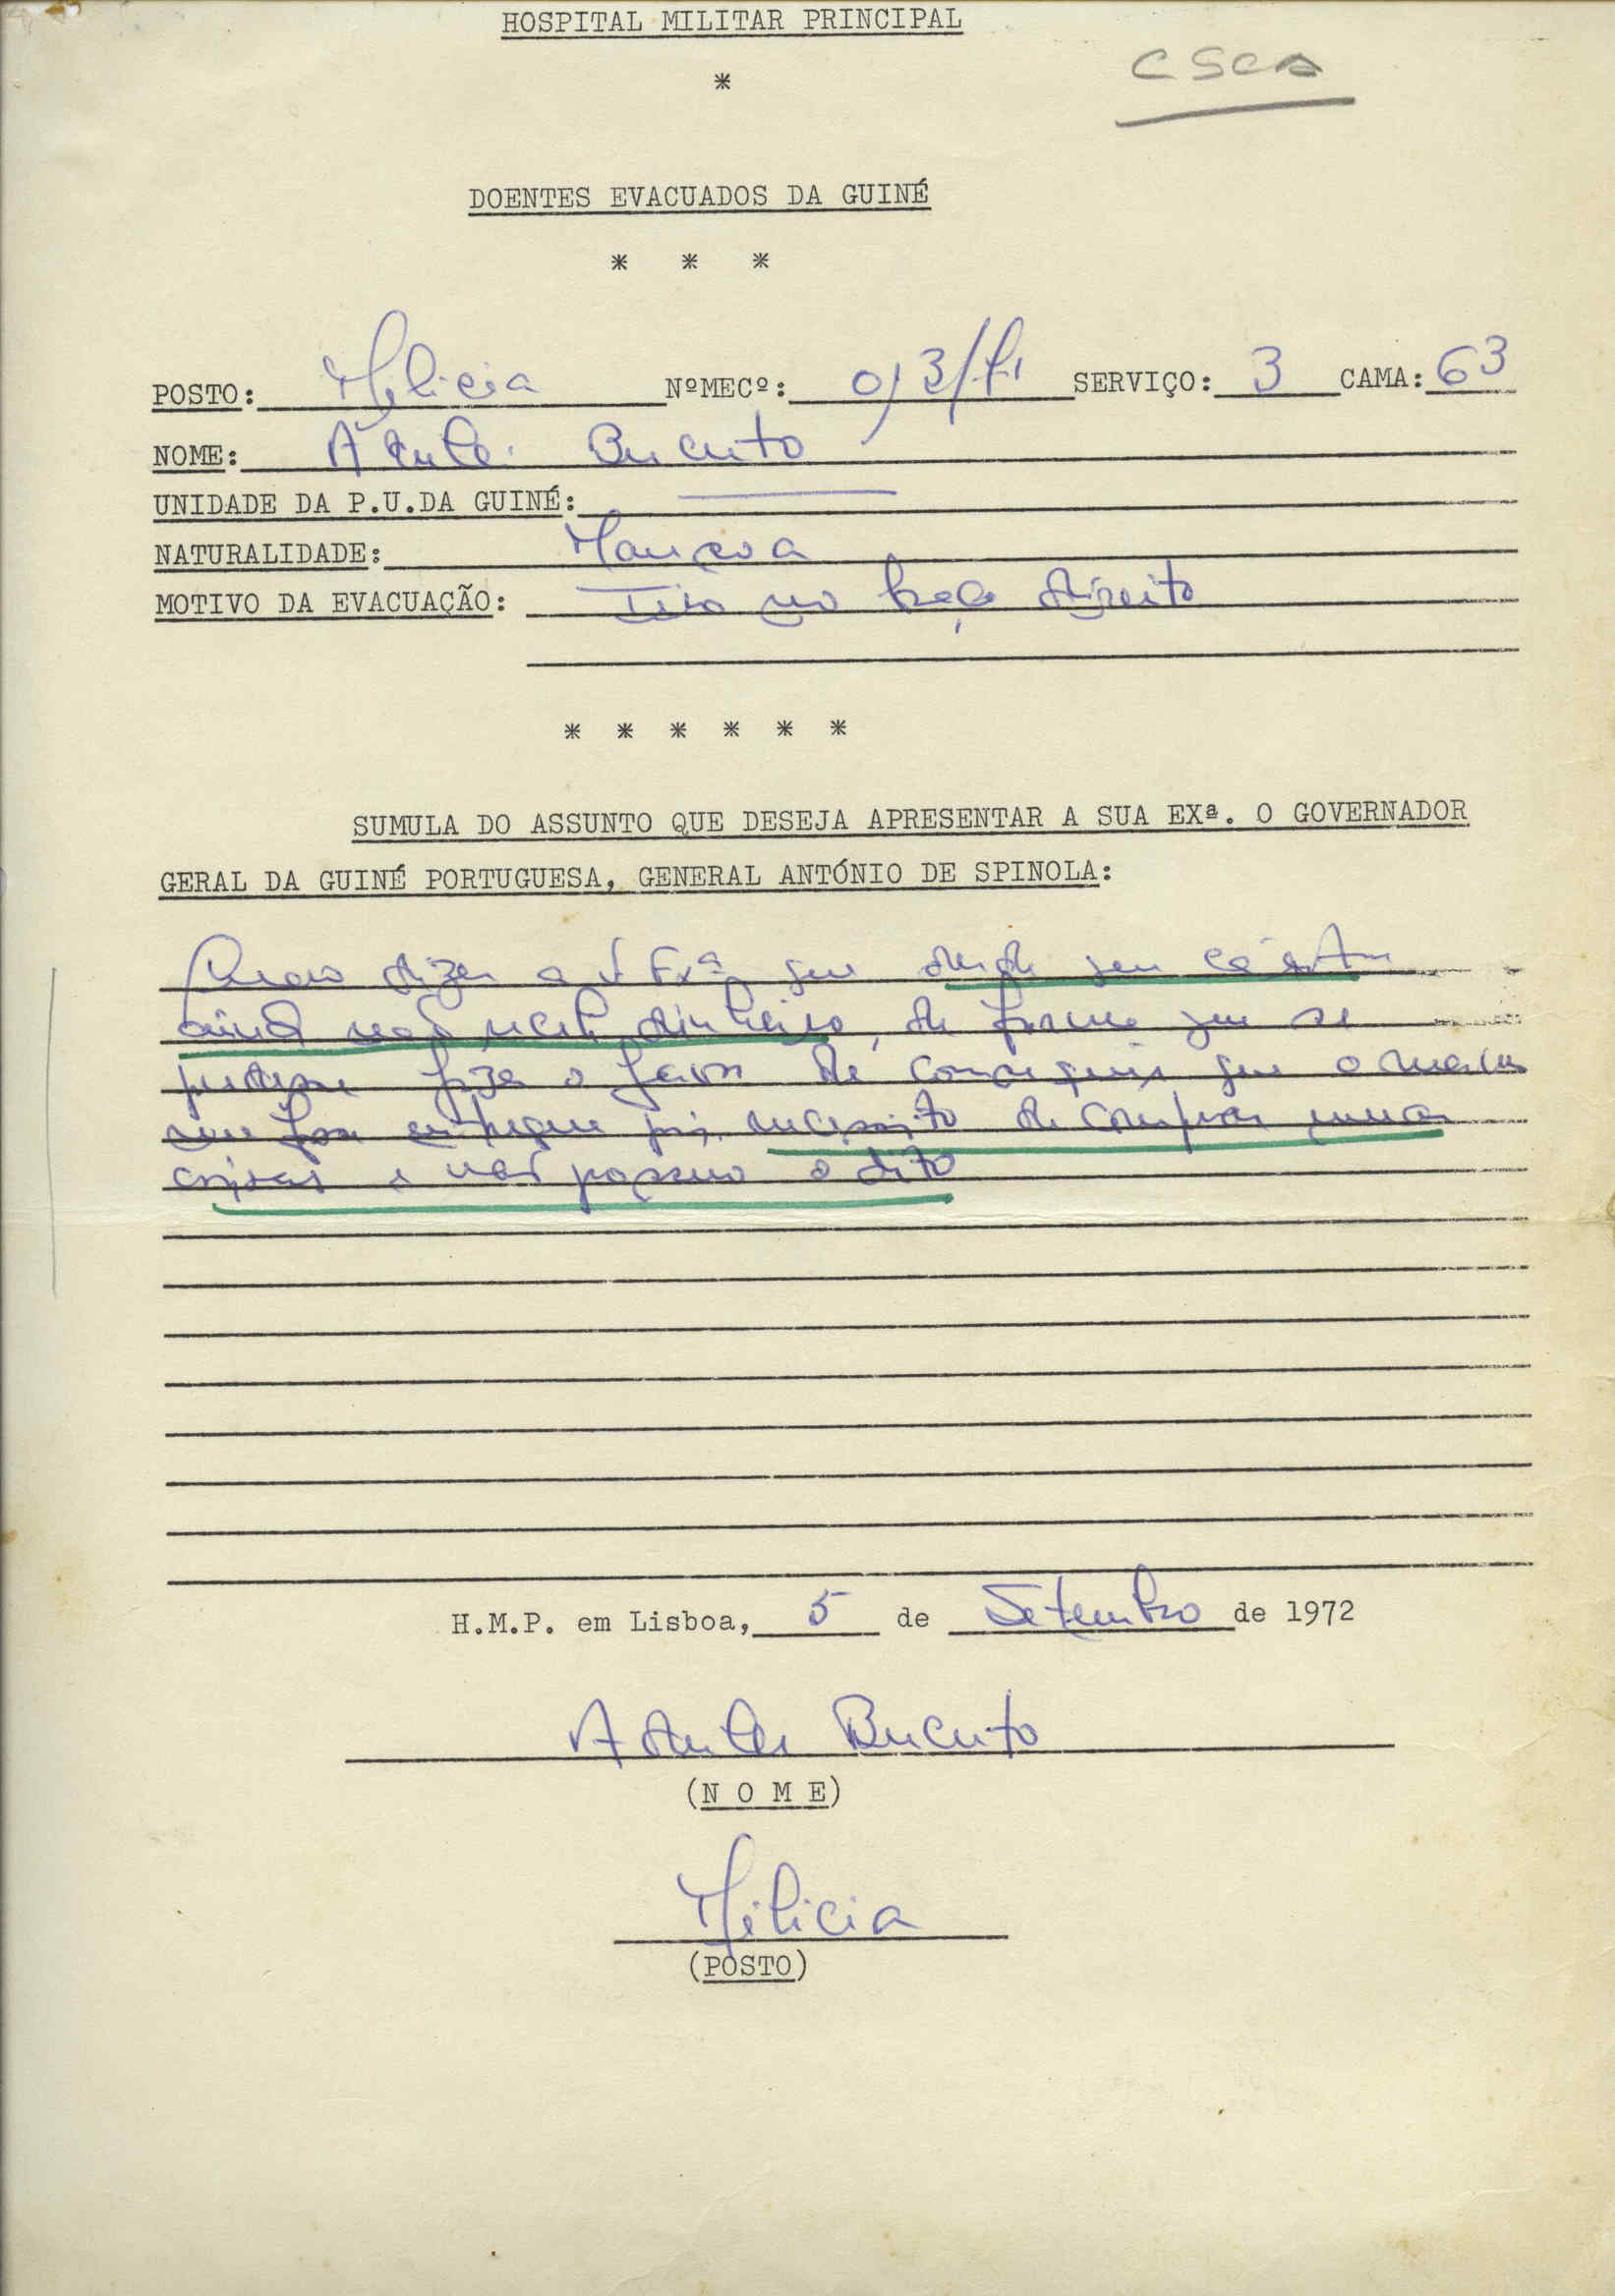 HOSPITAL MILITAR PRINCIPAL
*
DOENTES EVACUADOS DA GUINÉ
* * *
POSTO: Milicia NºMECº: SERVIÇO: 3 CAMA: 63
NOME: Bucuto
UNIDADE DA P.U.DA GUINÉ:
NATURALIDADE: Mansoa
MOTIVO DA EVACUAÇÃO: Tiro no braço direito
* * * * * *
SUMULA DO ASSUNTO QUE DESEJA APRESENTAR A SUA EXª. O GOVERNADOR
GERAL DA GUINÉ PORTUGUESA, GENERAL ANTÓNIO DE SPINOLA:
Quero dizer a V. Exª que desde que cá estou
ainda não recebi dinheiro, de forma que se
pudesse fizer o favor de conseguir que o mesmo
me fosse entregue pois necessito de comprar umas
coisas e não possuo o dito
H.M.P. em Lisboa, 5 de Setembro de 1972
Bucuto
(N O M E)
Milicia
(POSTO)